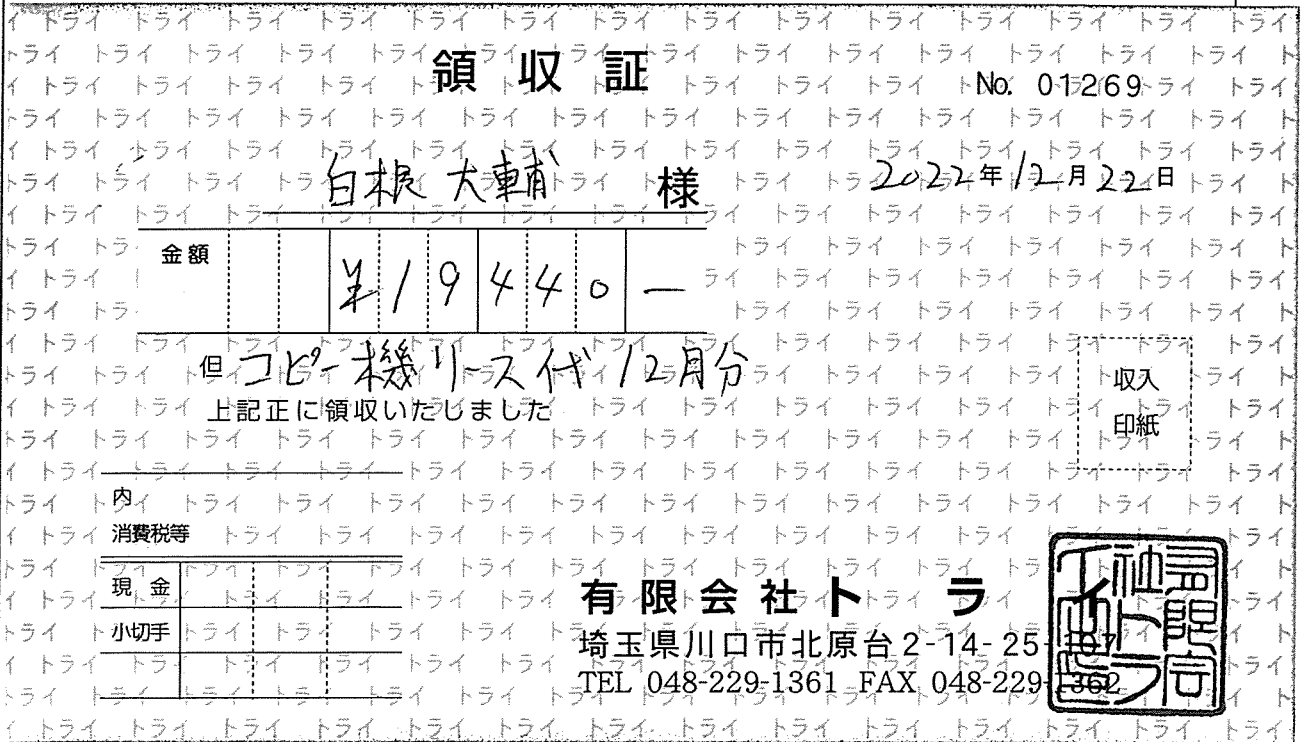 領収証
No. 01269
白根 大輔 様
2022年12月22日
金額 ¥19440-
但 コピー機リース代 12月分
上記正に領収いたしました
収入
印紙
内
消費税等
現金
小切手
有限会社トライ
埼玉県川口市北原台2-14-25-107
TEL 048-229-1361 FAX 048-229-1362